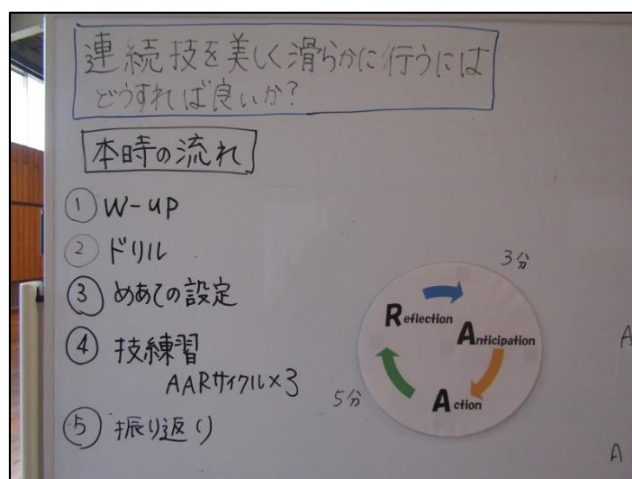 連続技を美しく滑らかに行うには
どうすれば良いか?
本時の流れ
① W-up
② ドリル
③ めあての設定
④ 技練習
AARサイクル×3
⑤ 振り返り
3分
Reflection
Anticipation
Action
5分
A
A